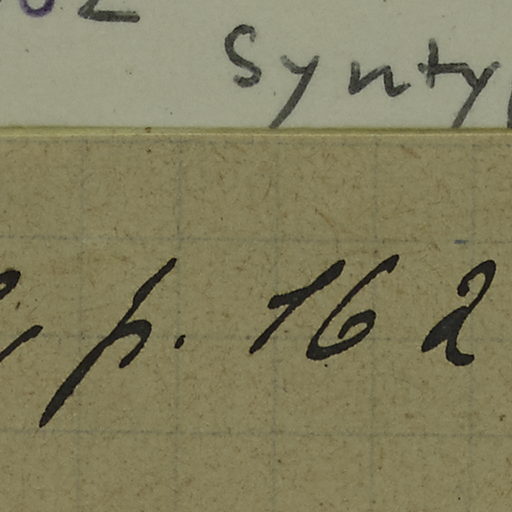 Synty
p. 162